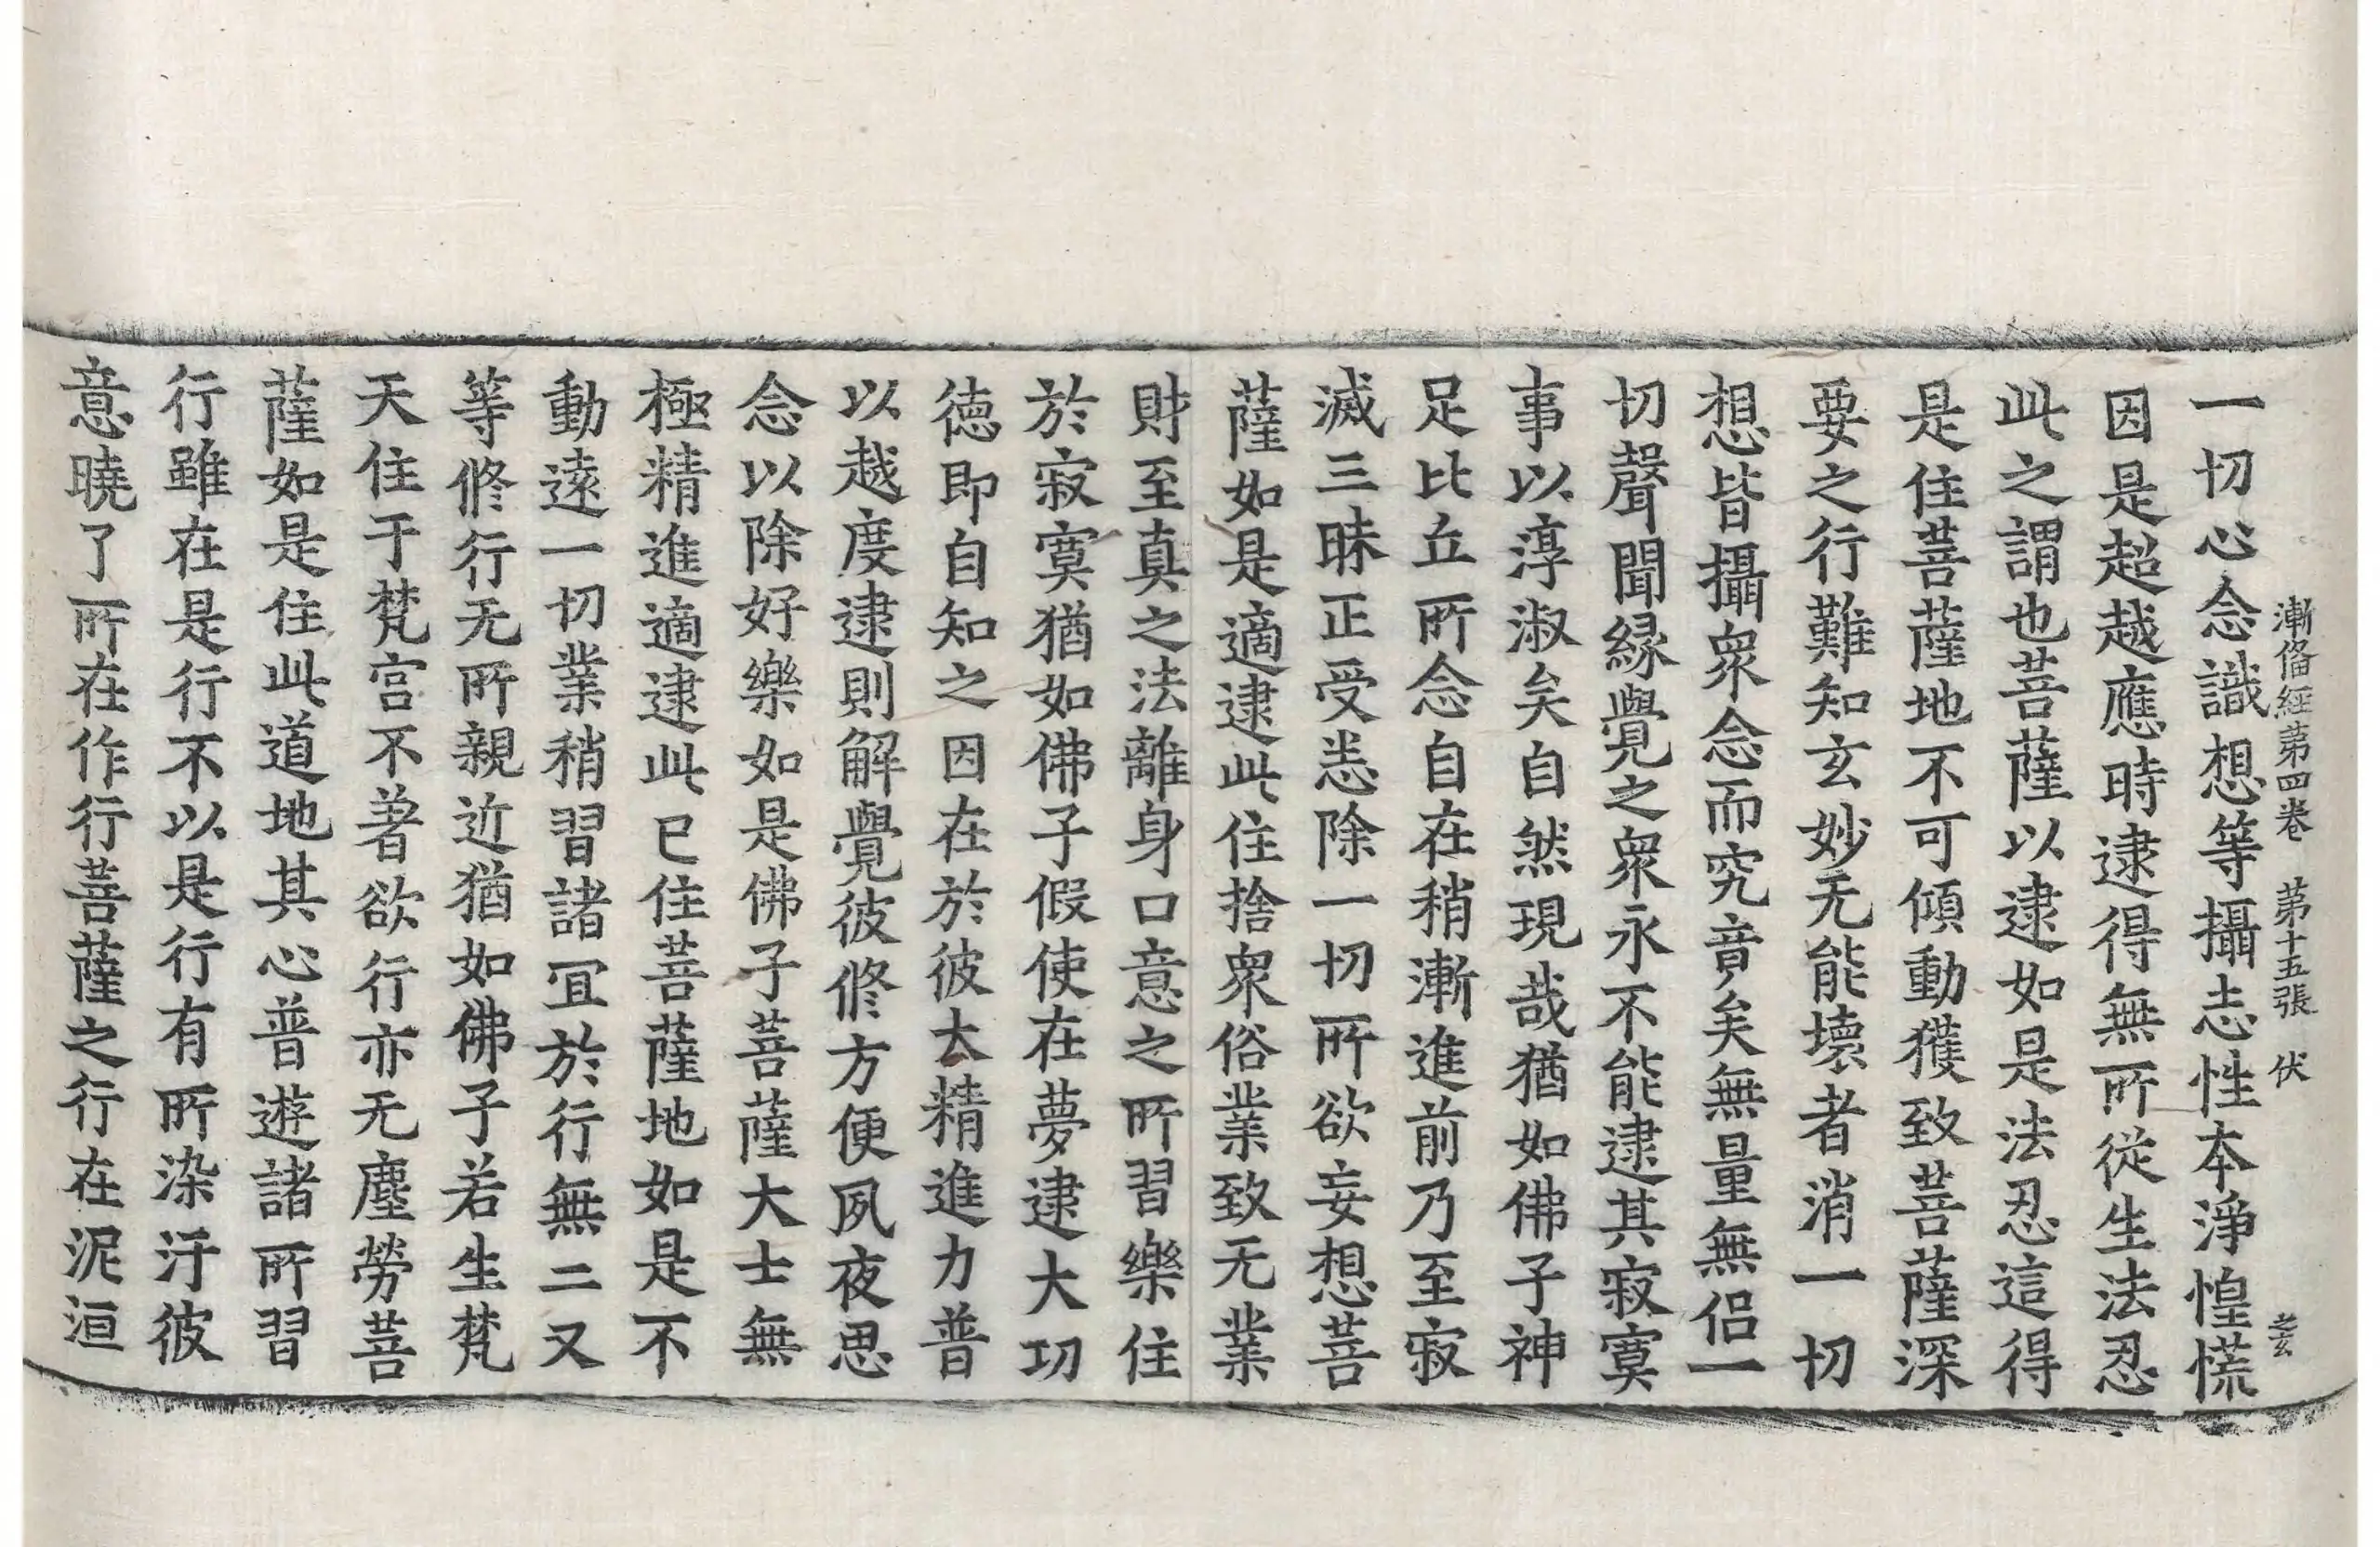 漸俻經第四卷　第十五張　伏　之玄
一切心念識想等攝志性本淨惶慌
因是超越應時逮得無所從生法忍
此之謂也菩薩以逮如是法忍這得
是住菩薩地不可傾動獲致菩薩深
要之行難知玄妙无能壞者消一切
想皆攝衆念而究竟矣無量無侣一
切聲聞緣覺之衆永不能逮其寂寞
事以淳淑矣自然現哉猶如佛子神
足比丘所念自在稍漸進前乃至寂
滅三昧正受恙除一切所欲妄想菩
薩如是適逮此住捨衆俗業致无業
財至真之法離身口意之所習樂住
於寂寞猶如佛子假使在夢逮大功
德即自知之因在於彼大精進力普
以越度逮則解覺彼修方便夙夜思
念以除好樂如是佛子菩薩大士無
極精進適逮此已住菩薩地如是不
動遠一切業稍習諸冝於行無二又
等修行无所親近猶如佛子若生梵
天住于梵宫不著欲行亦无塵勞菩
薩如是住此道地其心普遊諸所習
行雖在是行不以是行有所染汙彼
意曉了所在作行菩薩之行在泥洹